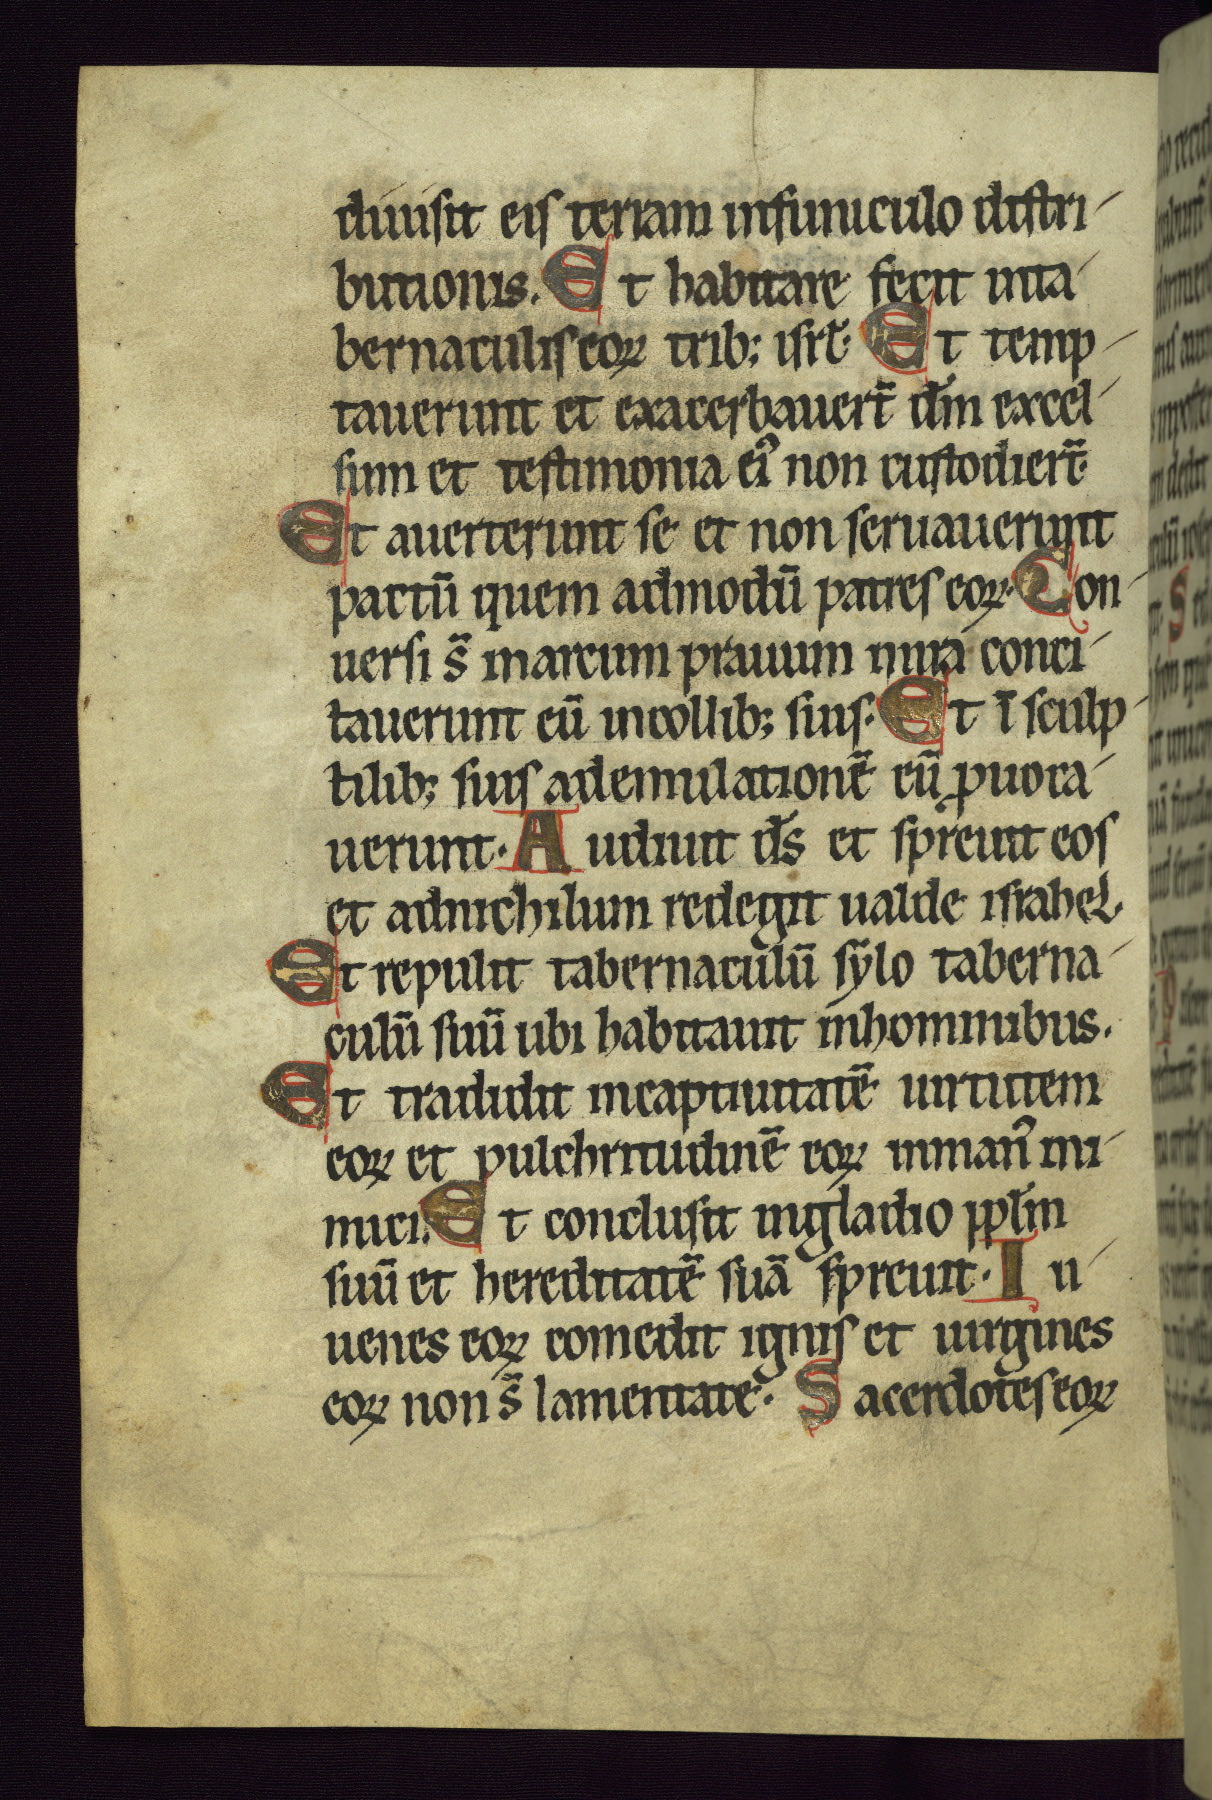 diuisit eis terram infuniculo distri-
butionis. Et habitare fecit inta-
bernaculis eoꝝ trib; isrł. Et temp-
tauerunt et exacerbauert̄ dm̄ excel-
sum et testimonia ei᾽ non custodiert̄.
Et auerterunt se et non seruauerunt
pactū quem admodū patres eoꝝ. Con-
uersi s̄ inarcum prauum inira conci-
tauerunt eū incollib; suis. Et ī sculp-
tilib; suis ademulationē eū ꝓuoca-
uerunt. Audiuit ds̄ et spreuit eos
et adnichilum redegit ualde israhel.
Et repulit tabernaculū sẏlo taberna-
culū suū ubi habitauit inhominibus.
Et tradidit incaptiuitatē uirtutem
eoꝝ et pulchritudinē eoꝝ inman᾽ ini-
mici. Et conclusit ingladio pplm̄
suū et hereditatē suā spreuit. Iu-
uenes eoꝝ comedit ignis et uirgines
eoꝝ non s̄ lamentate. Sacerdotes eoꝝ